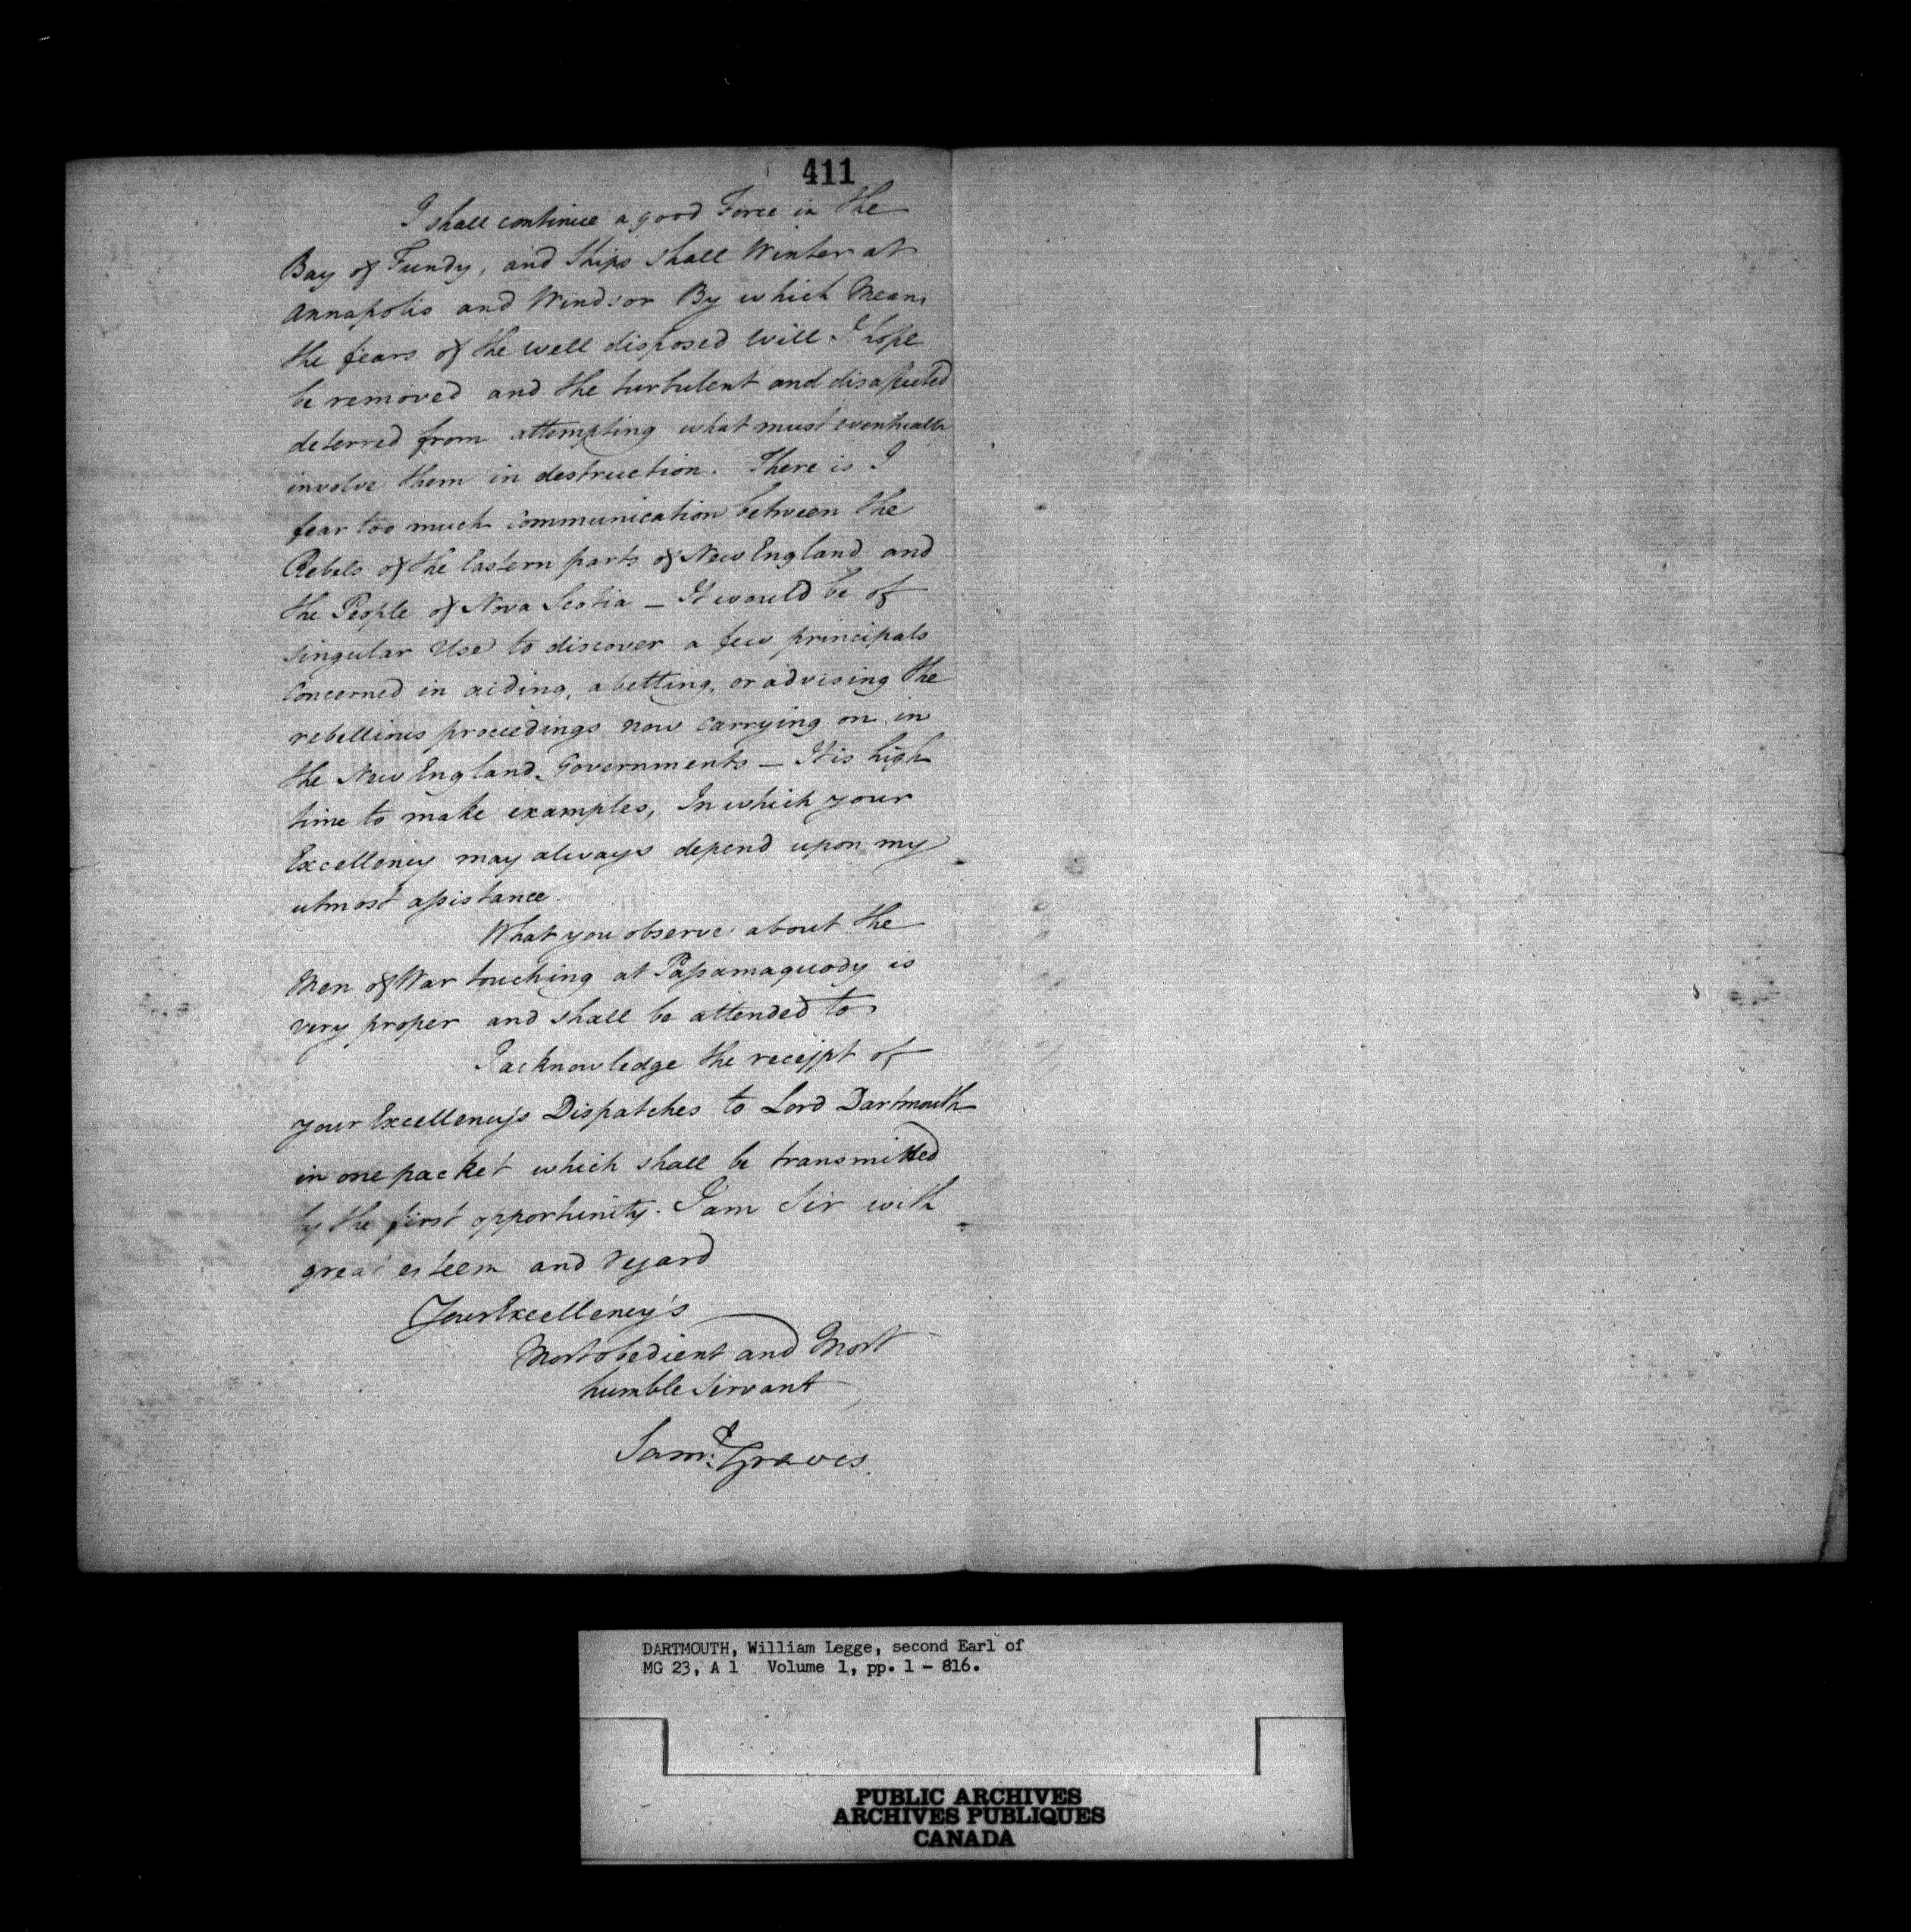 411
I shall continue a good Force in the
Bay of Fundy, and Ships shall Winter at
Annapolis and Windsor By which Means
the fears of the well disposed will I hope
be removed and the turbulent and disaffected
deterred from attempting what must eventually
involve them in destruction. There is I
fear too much communication between the
Rebels of the Eastern parts of New England and
the People of Nova Scotia — It would be of
singular Use to discover a few principals
Concerned in aiding, abetting, or advising the
rebellious proceedings now carrying on in
the New England Governments — It is high
time to make examples, In which your
Excellency may always depend upon my
utmost assistance.
What you observe about the
Men of War touching at Passamaquody is
very proper and shall be attended to
I acknowledge the receipt of
your Excellency's Dispatches to Lord Dartmouth
in one packet which shall be transmitted
by the first opportunity. I am Sir with
great esteem and regard
Your Excellency's
Most obedient and Most
humble Servant
Saml. Graves
DARTMOUTH, William Legge, second Earl of
MG 23, A 1 Volume 1, pp. 1 - 816.
PUBLIC ARCHIVES
ARCHIVES PUBLIQUES
CANADA